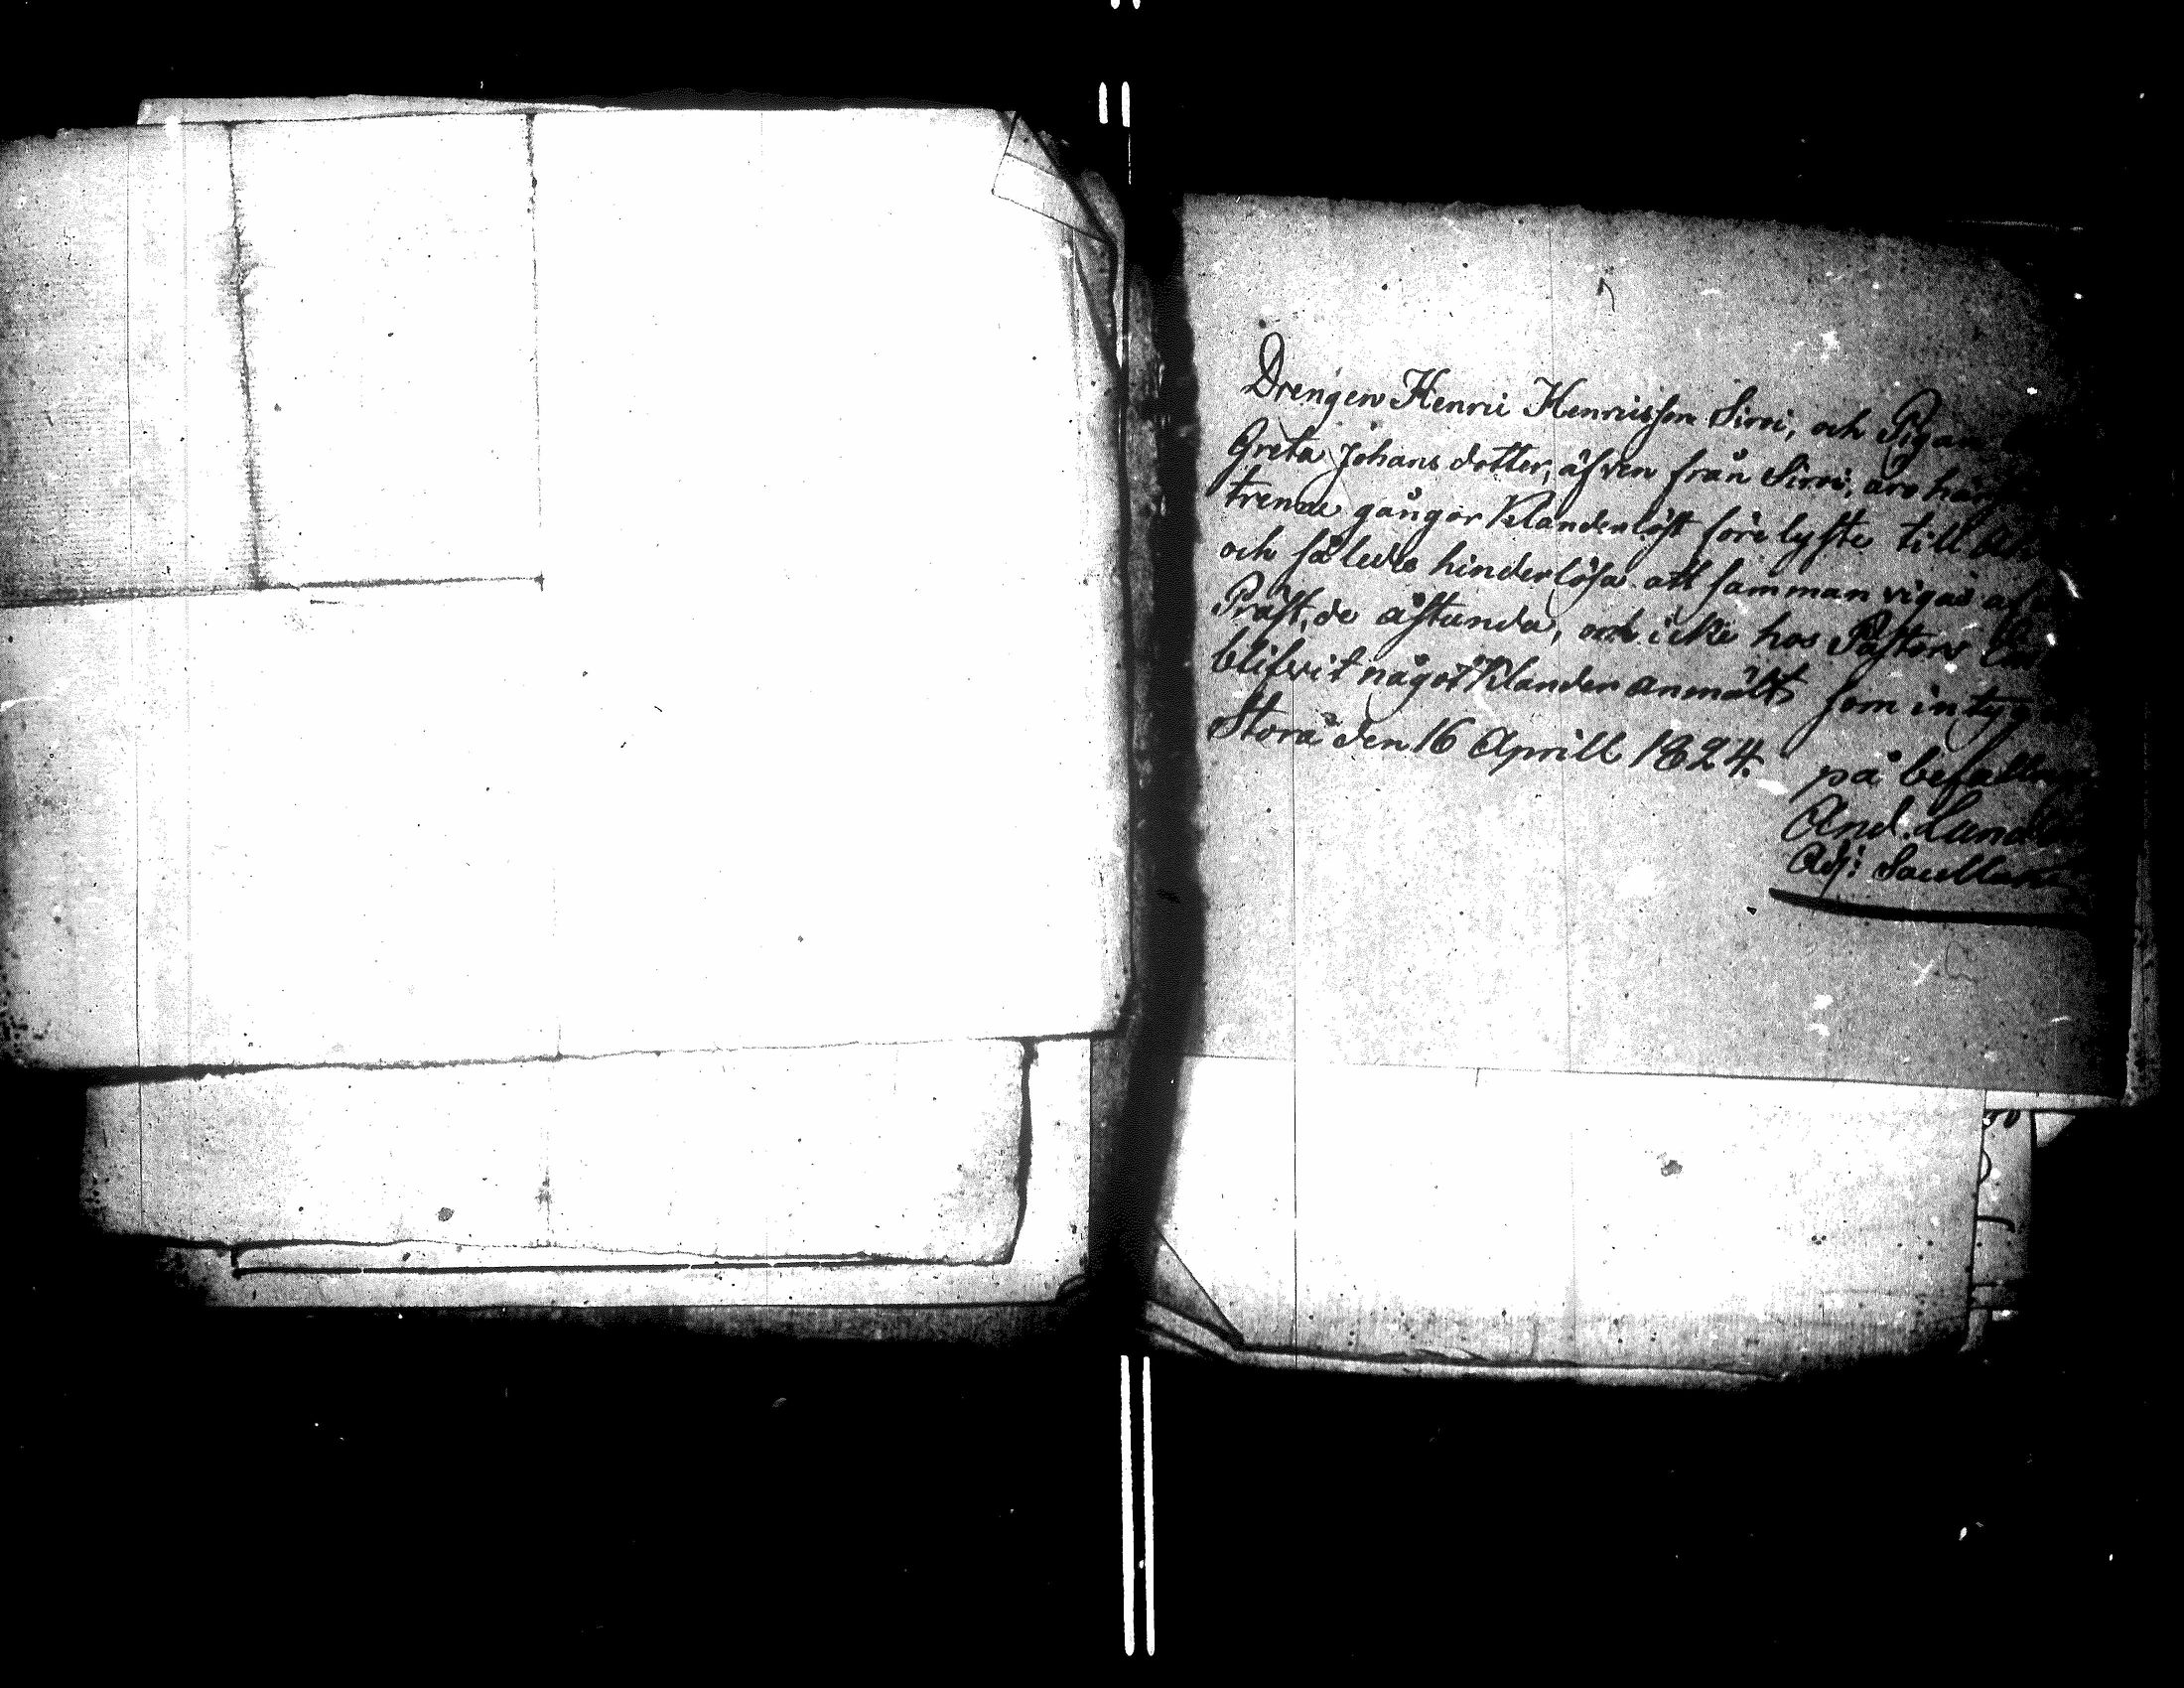 Drengen Henric Henricsson Sirvi, och Pigan
Greta Johans dotter, äfven från Sirvi, äro här
trenne gångor klanderlöst förelyste till
och således hinderlösa att sammanvigas af
Präst, de åstunda, och icke hos Pastors
blifvit något klander anmält, som intygas
Storå den 16 Aprill 1824.
på befallning
And. Lund
Adj: